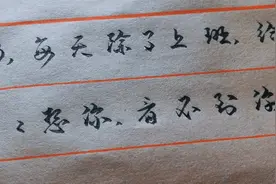 、每天除了上班、给
：想你、看不到你